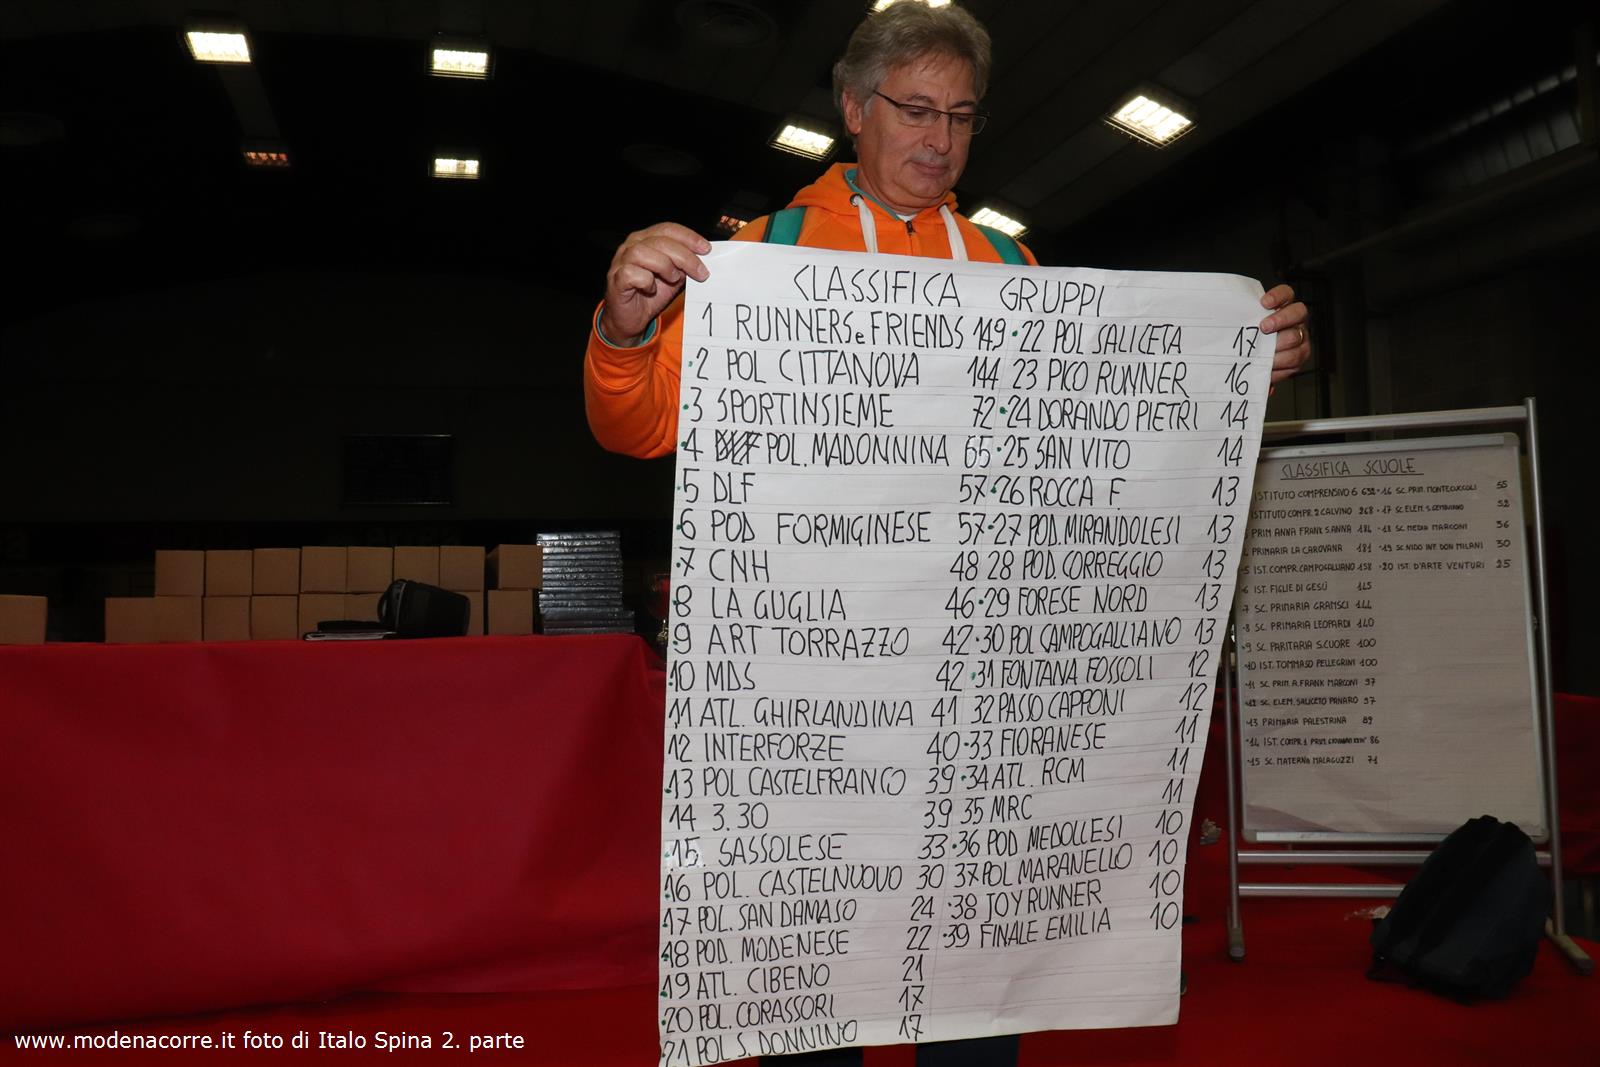 CLASSIFICA GRUPPI
1 RUNNERS e FRIENDS 149
2 POL CITTANOVA 144
3 SPORTINSIEME 72
4 POL. MADONNINA 65
5 DLF 57
6 POD FORMIGINESE 57
7 CNH 48
8 LA GUGLIA 46
9 ART TORRAZZO 42
10 MDS 42
11 ATL. GHIRLANDINA 41
12 INTERFORZE 40
13 POL CASTELFRANCO 39
14 3.30 39
15. SASSOLESE 33
16 POL. CASTELNUOVO 30
17 POL. SAN DAMASO 24
18 POD. MODENESE 22
19 ATL. CIBENO 21
20 POL. CORASSORI 17
21 POL S. DONNINO 17
22 POL SALICETA 17
23 PICO RUNNER 16
24 DORANDO PIETRI 14
25 SAN VITO 14
26 ROCCA F. 13
27 POD. MIRANDOLESI 13
28 POD. CORREGGIO 13
29 FORESE NORD 13
30 POL CAMPOGALLIANO 13
31 FONTANA FOSSOLI 12
32 PASSO CAPPONI 12
33 FIORANESE 11
34 ATL. RCM 11
35 MRC 11
36 POD MEDOLLESI 10
37 POL MARANELLO 10
38 JOY RUNNER 10
39 FINALE EMILIA 10
CLASSIFICA SCUOLE
ISTITUTO COMPRENSIVO 6 692
ISTITUTO COMPR. 2 CALVINO 268
PRIM ANNA FRANK S.ANNA 184
PRIMARIA LA CAROVANA 181
5 IST. COMPR. CAMPOGALLIANO 158
6 IST. FIGLIE DI GESÙ 145
7 SC. PRIMARIA GRAMSCI 144
8 SC. PRIMARIA LEOPARDI 140
9 SC. PARITARIA S.CUORE 100
10 IST. TOMMASO PELLEGRINI 100
11 SC. PRIM. A. FRANK MARCONI 97
12 SC. ELEM. SALICETO PANARO 97
13 PRIMARIA PALESTRINA 89
14 IST. COMPR. 1 PRIM. GIOVANNI XXIII° 86
15 SC. MATERNA MALAGUZZI 71
16 SC. PRIM. MONTECUCCOLI 55
17 SC. ELEM. S. GEMINIANO 52
18 SC MEDIA MARCONI 36
19 SC. NIDO INF. DON MILANI 30
20 IST. D'ARTE VENTURI 25
www.modenacorre.it foto di Italo Spina 2. parte